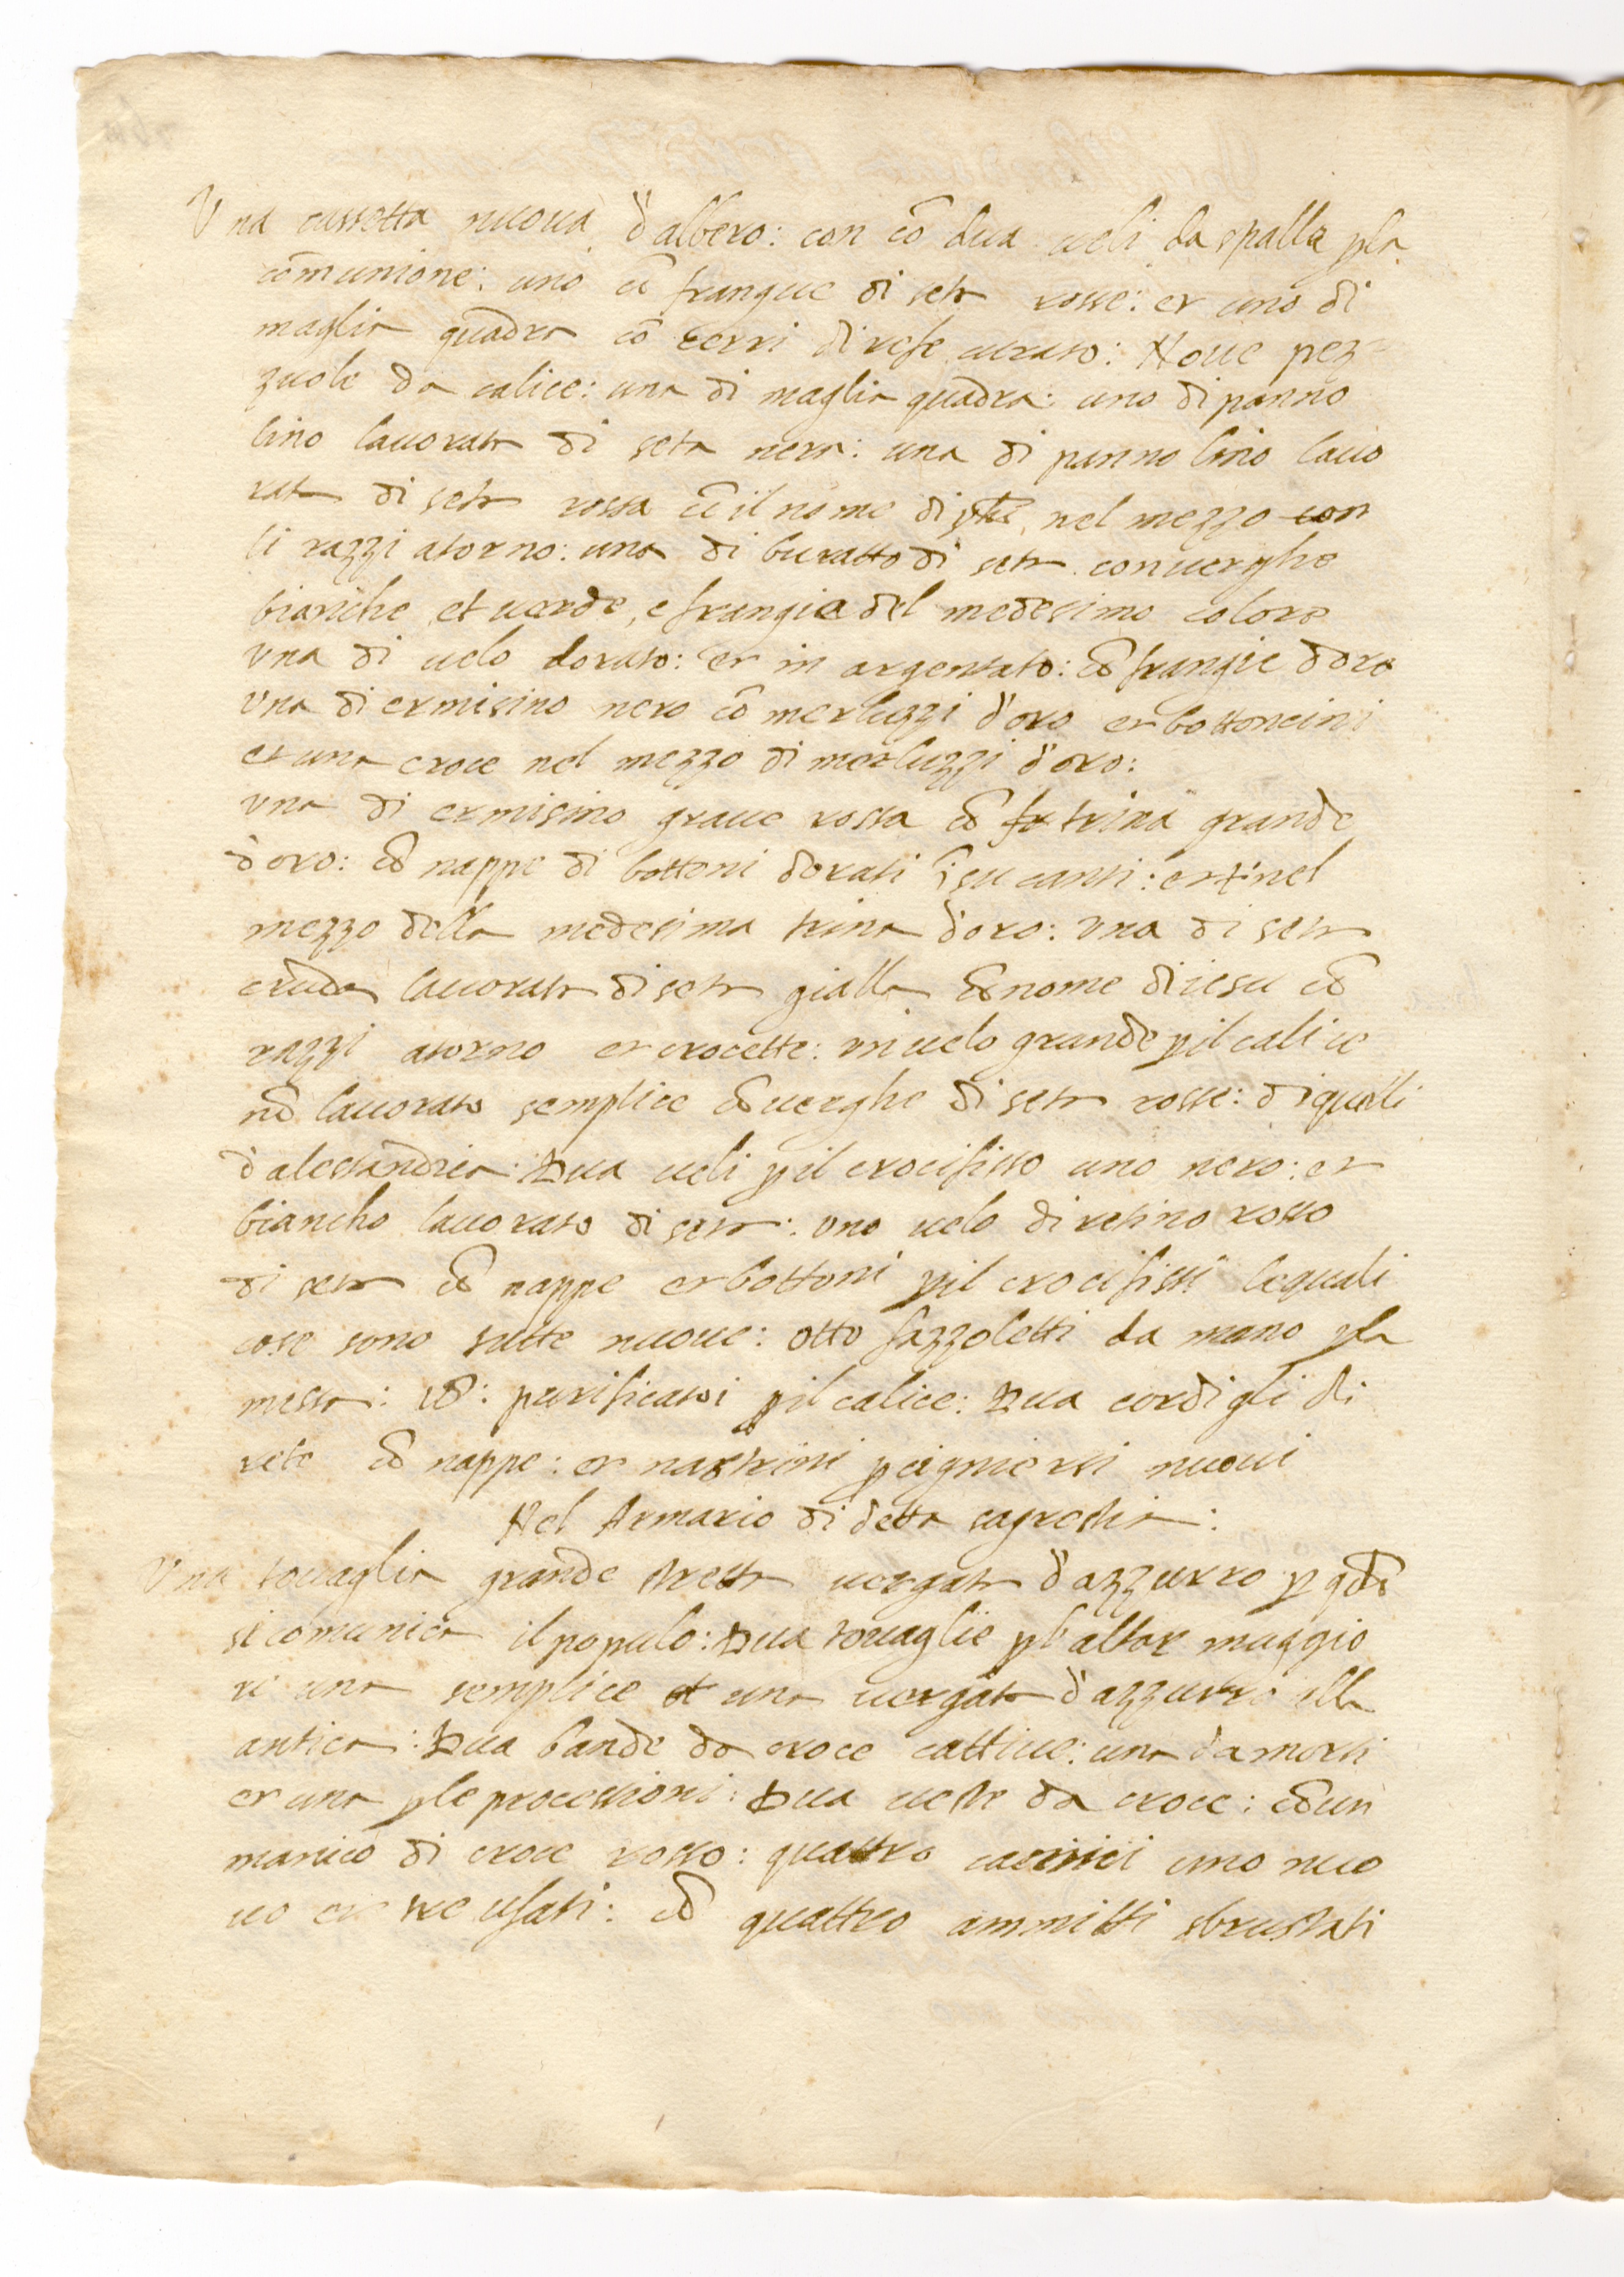 Una cassetta nuoua d'albero: con cō dua ueli da spalla pla
cōmunione: uno cō frangue di seta rosse: et uno di
maglia quadra cō cerri di refe curato: Noue pez=
zuole da calice: una di maglia quadra: uno di panno
lino lauorata di seta nera: una di panno lino lauo
rata di seta rossa cō il nome di nel mezzo con
li razzi atorno: una di buratto di seta con uerghe
bianche et uerde, e frangie del medesimo colore
una di uelo dorato: et in argentato: cō frangie doro
una di ermisino nero cō merluzzi d'oro et bottoncini
et una croce nel mezzo di merluzzi d'oro:
una di ermisino graue rossa cō fr trina grande
d'oro: cō nappe di bottoni dorati ī su canti: et † nel
mezzo della medesima trina d'oro: una di seta
cruda lauorata di seta gialla cō nome di iesu cō
razzi atorno et crocette: un uelo grande p il calice
nō lauorato semplice cō uerghe di seta rosse: di quelli
d'alessandria: Dua ueli p il crocifisso uno nero: et
biancho lauorato di seta: uno uelo di retino rosso
di seta cō nappe et bottoni p il crocifissi le quali
cose sono tutte nuoue: otto fazzoletti da mano pla
messa: 18: purificatoi p il calice: Dua cordigli di
refe cō nappe: et nastrini p cignersi nuoui
Nel Armario di detta sagrestia:
Una touaglia grande stretta uergata d'azzurro p qdō
si comunica il populo: Dua touaglie pl' altar maggio
re una semplice et una uergata d'azzurro alla
antica: Dua bande da croce cattiue: una da morti
et una ple processioni: Dua ueste da croce: cō un
manico di croce rosso: quattro camici uno nuo
uo et tre usati: cō quattro ammitti sbrustati